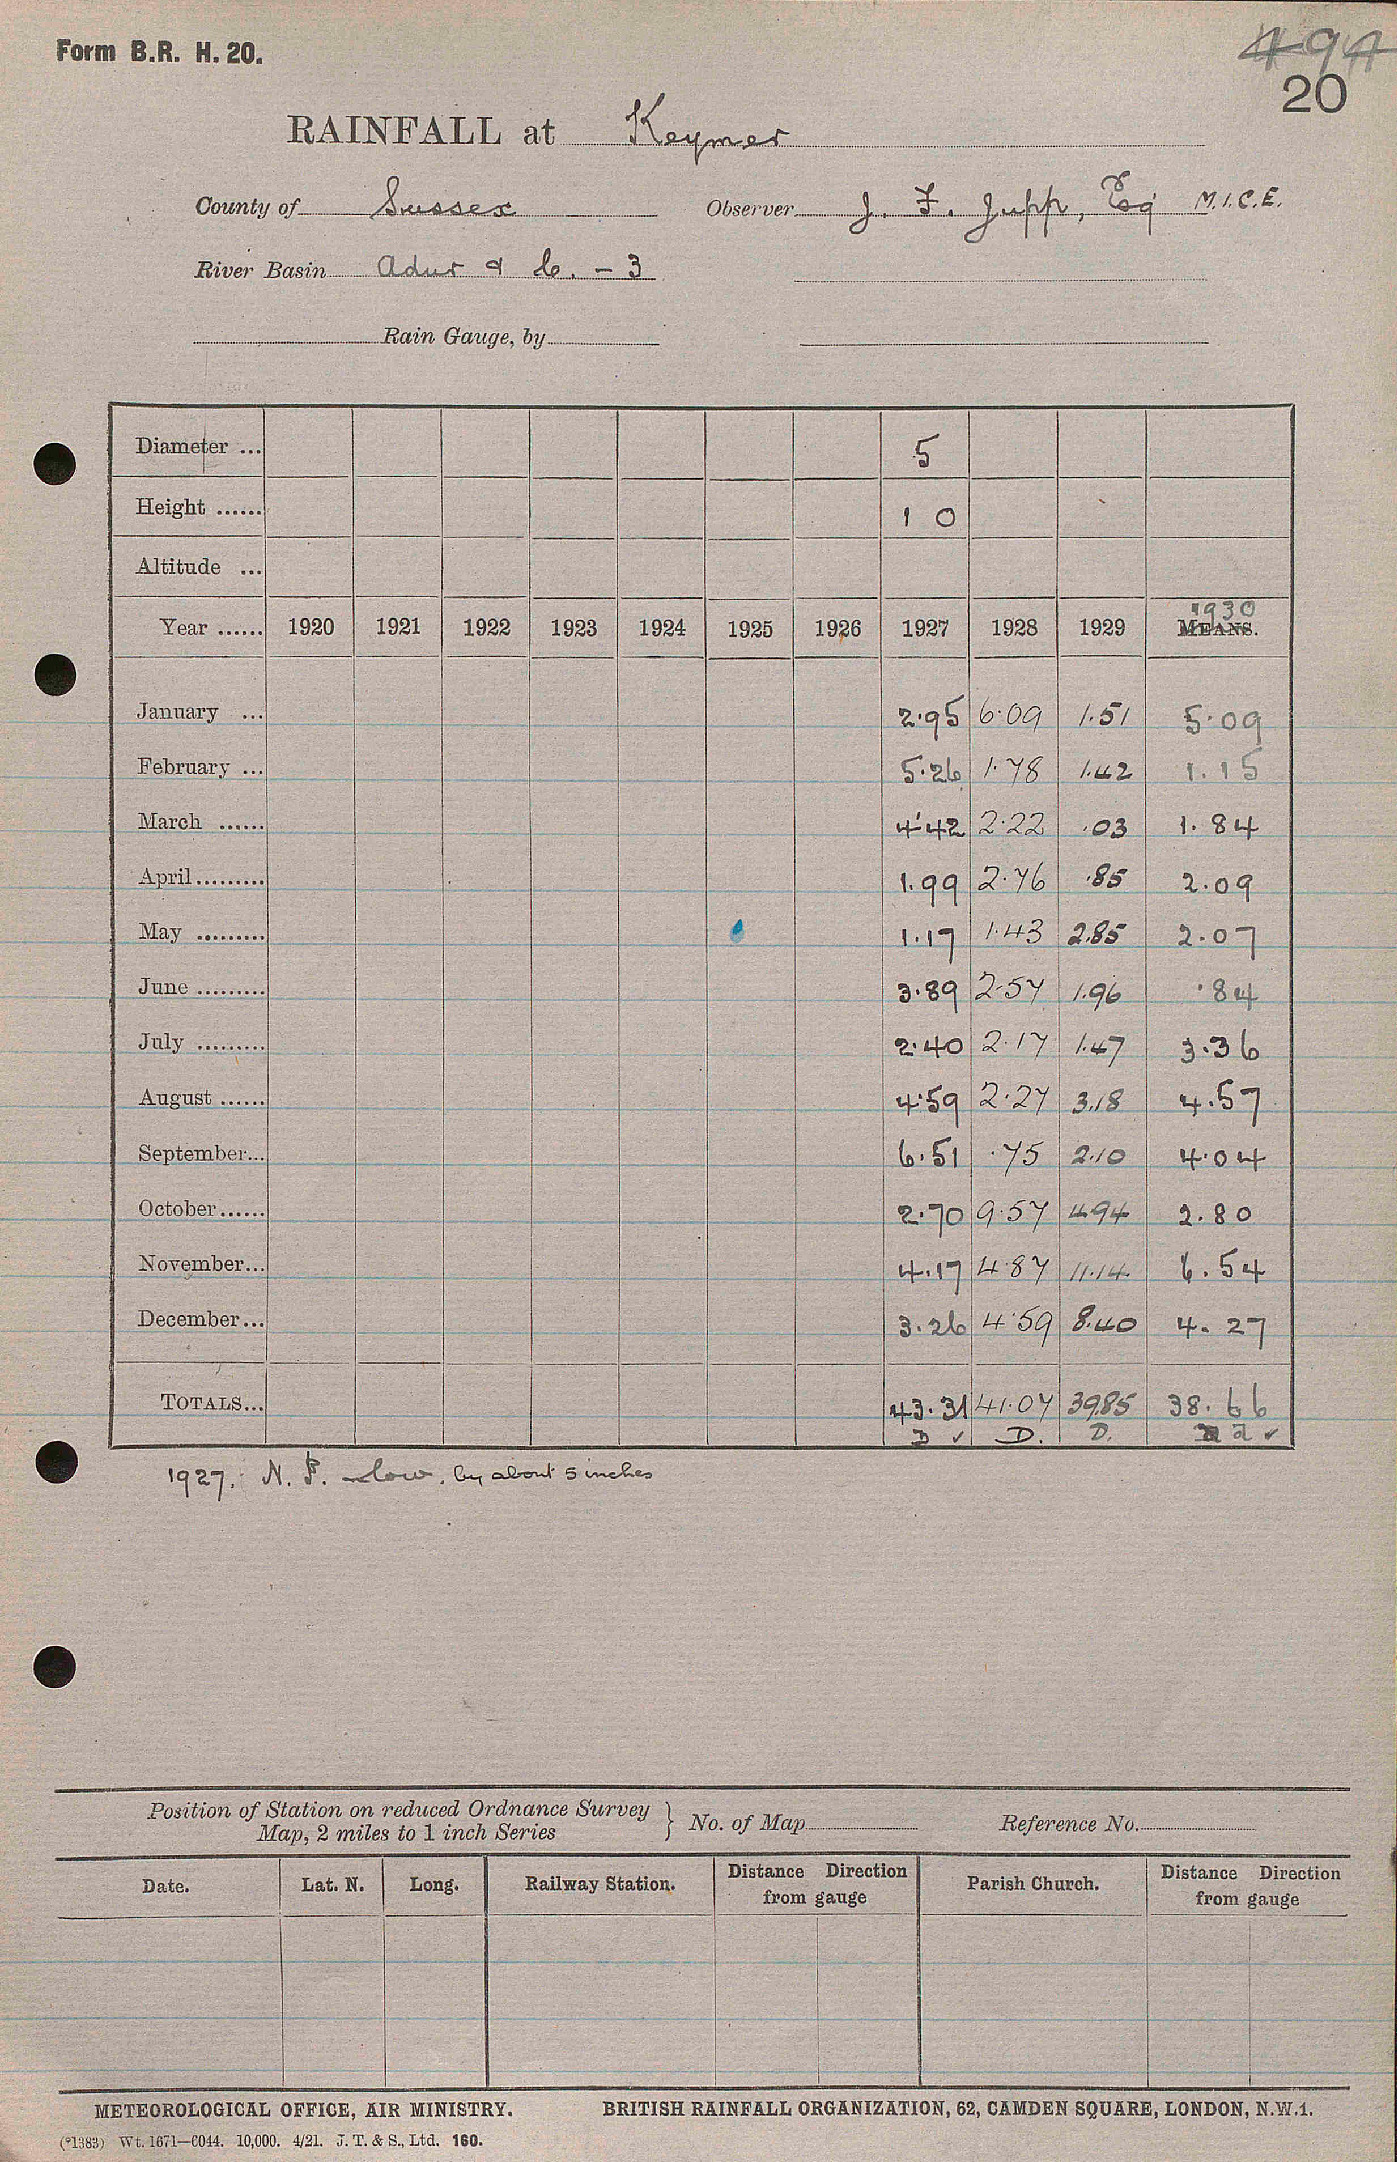 Form B.R. H. 20.
494
20
RAINFALL at Keymer
County of Sussex Observer J. F. Jupp, Esq M.I.C.E.
River Basin Adur &c. - 3
Rain Gauge, by
Diameter ... 5
Height ...... 1 0
Altitude ...
1930
Year ...... 1920 1921 1922 1923 1924 1925 1926 1927 1928 1929 MEANS.
January ... 2.95 6.09 1.51 5.09
February ... 5.26 1.78 1.42 1.15
March ...... 4.42 2.22 .03 1.84
April......... 1.99 2.76 .85 2.09
May ......... 1.17 1.43 2.85 2.07
June ......... 3.89 2.57 1.96 .84
July ......... 2.40 2.17 1.47 3.36
August ...... 4.59 2.27 3.18 4.57
September... 6.51 .75 2.10 4.04
October...... 2.70 9.57 4.94 2.80
November... 4.17 4.87 11.14 6.54
December... 3.26 4.59 8.40 4.27
TOTALS... 43.31 41.07 39.85 38.66
D ✓ D. D. d ✓
1927. N. F. slow, by about 5 inches
Position of Station on reduced Ordnance Survey
Map, 2 miles to 1 inch Series } No. of Map Reference No.
Date. Lat. N. Long. Railway Station. Distance Direction from gauge Parish Church. Distance Direction from gauge
METEOROLOGICAL OFFICE, AIR MINISTRY. BRITISH RAINFALL ORGANIZATION, 62, CAMDEN SQUARE, LONDON, N.W.1.
(*1383) Wt. 1671—C044. 10,000. 4/21. J. T. & S., Ltd. 160.